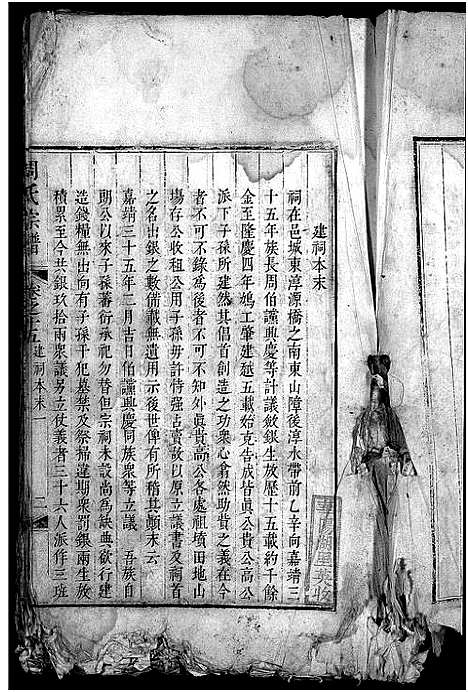 建祠本末
祠在邑城東淳源橋之南東山障後淳水帶前乙辛向嘉靖三
十五年族長周伯諠興慶等計議斂銀生放歷十五載約千餘
金至隆慶四年鳩工肇建越五載始克告成皆貴公貴高公
派下子孫所建然其倡首創造之功衆心貪然助貲之義在今
者不可不錄爲後者不可不知外貴高公各處祖墳田地山
塲存公收租公用子孫毋許恃强占賣故以原立議書及祠首
之名出銀之數備載無遺用示後世俾有所稽其顛末云
嘉靖三十五年二月吉日伯諠興慶同族衆等立議 吾族自
朗公以來子孫蕃衍承祀勿替但宗祠未設尚爲缺典欲行建
造錢糧無出向有子孫干犯墓禁及祭掃違期衆罰銀兩生放
積累至今共銀玖拾兩衆議另立仗義者三十六人派作三班
周氏宗譜 卷之五 建祠本末 一 二